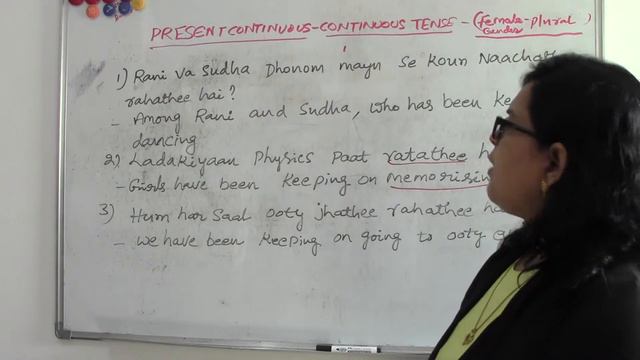 PRESENT CONTINUOUS-CONTINUOUS TENSE - (female-plural)
Gender
1) Rani va Sudha Dhonom mayn se Koun
rahathee hai?
- Among Rani and Sudha, who has been
dancing
2) Ladakiyaan Physics Paat ratathee
- Girls have been keeping on
3) Hum har Saal ooty jhathee rahathee
- we have been keeping on going to ooty